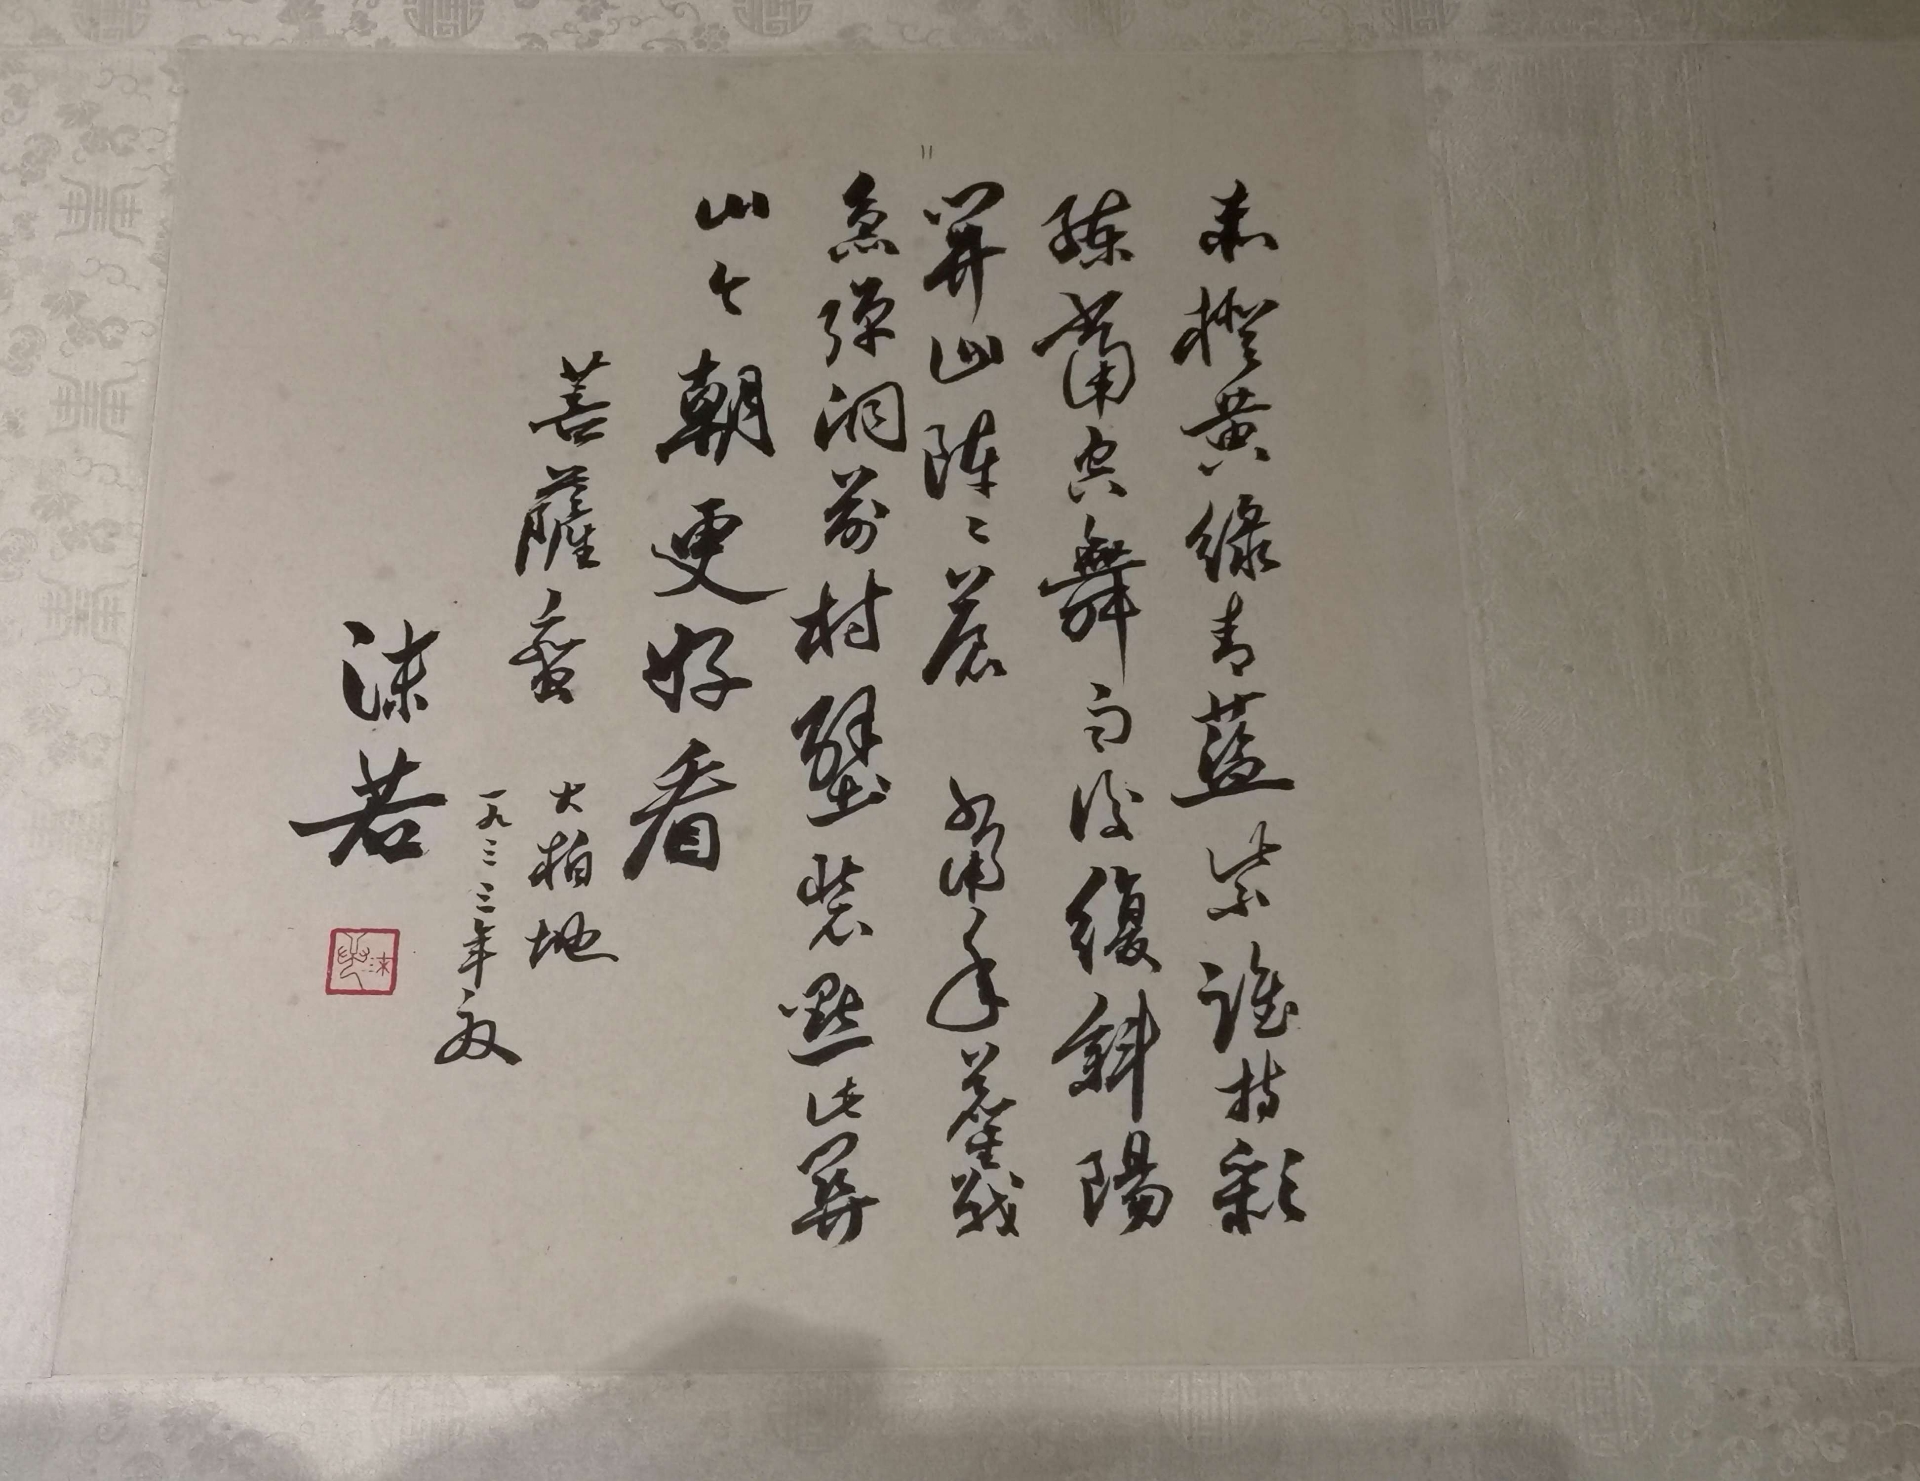 赤橙黃綠青藍紫誰持彩
練當空舞雨後復斜陽
關山陣〻蒼 當年鏖戰
急彈洞前村壁裝點此關
山今朝更好看
菩薩蛮 大柏地
一九三三年夏
沫若
沫若